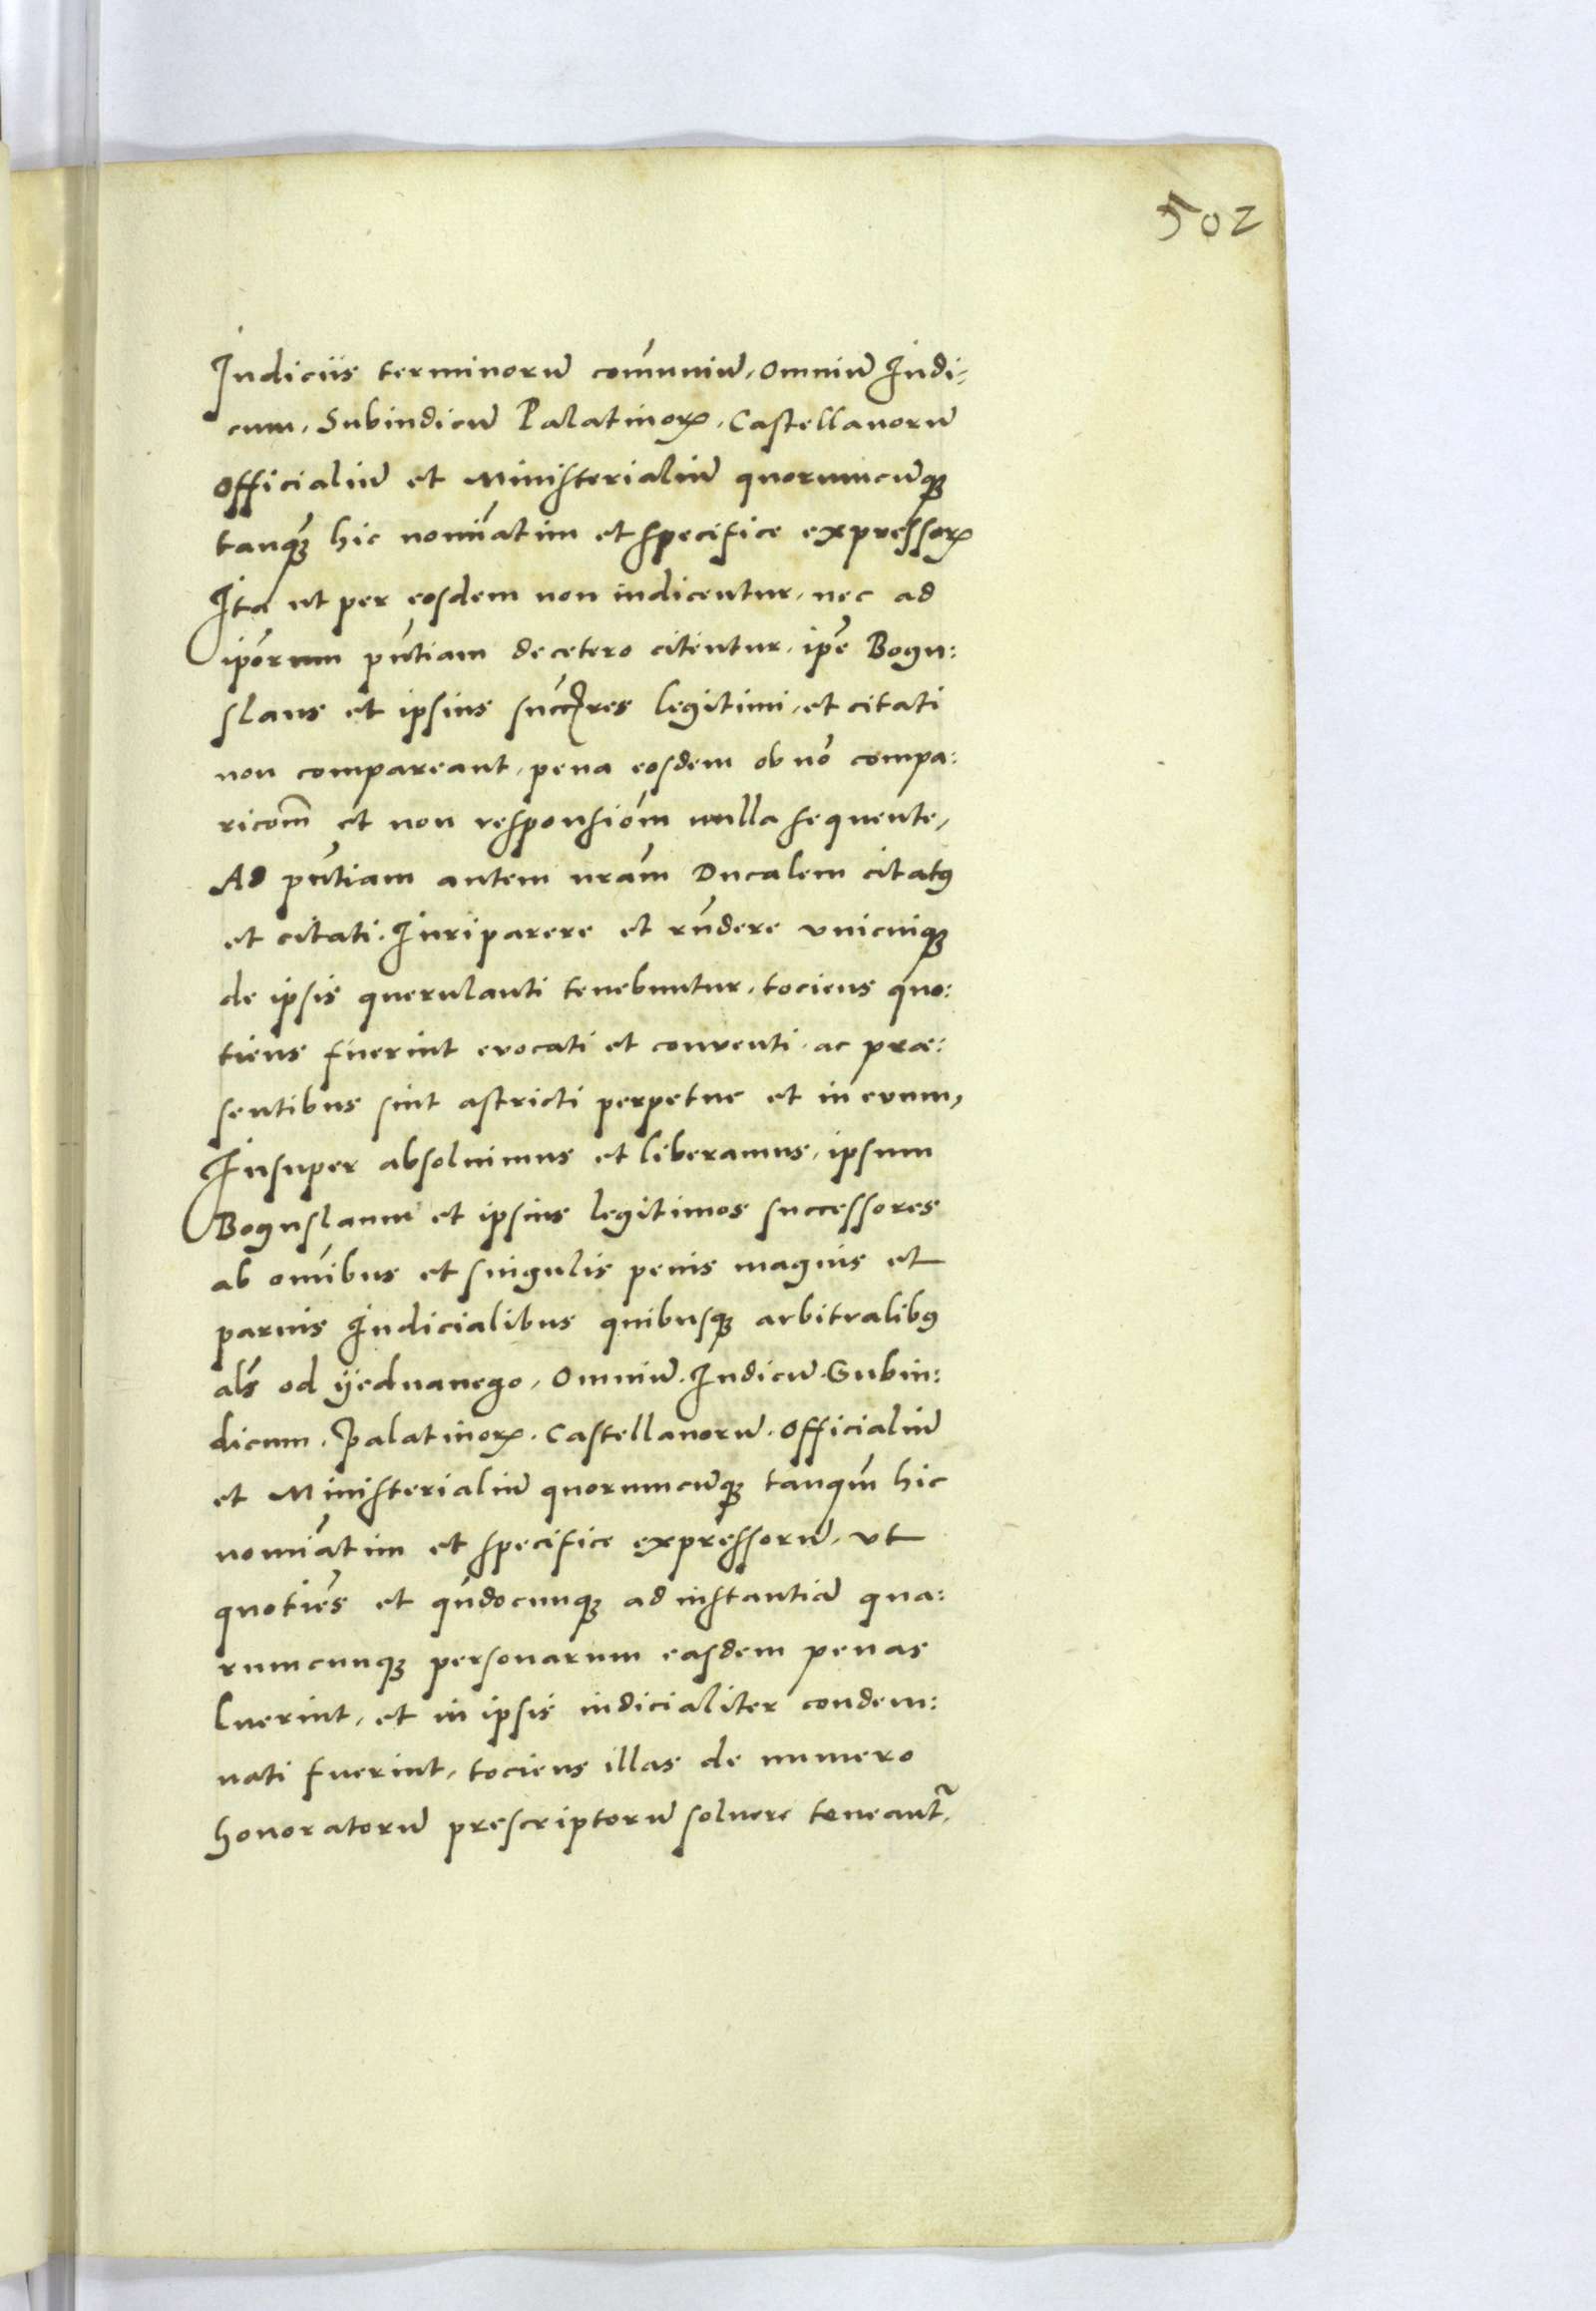 502
Iudiciis terminorū com̄uniū, omniū Iudi:
cum, Subiudicū Palatinoꝝ, Castellanorū
officialiū et Ministerialiū quorumcūqꝫ
tanqꝫ hic nomīatim et specifice expressoꝝ
Ita ut per eosdem non iudicentur, nec ad
ip̄orum pn̄tiam decetero citentur, ip̄e Bogu:
slaus et ipsius succ̄res legitimi, et citati
non compareant, pena eosdem ob nō compa:
ricōm̄ et non responsiōm nulla sequente,
Ad pn̄tiam autem nr̄am Ducalem citatꝯ
et citati. Iuri parere et rn̄dere vnicuiqꝫ
de ipsis querulanti tenebuntur, tociens quo:
tiens fuerint evocati et conventi, ac præ:
sentibus sint astricti perpetue et in evum,
Insuper absoluimus et liberamus, ipsum
Boguslaum et ipsius legitimos successores
ab om̄ibus et singulis penis magnis et
paruis Iudicialibus quibusqꝫ arbitralibꝯ
al̄s od yednanego, Omniū. Iudicū. Subiu:
dicum. Palatinoꝝ. Castellanorū. Officialiū
et Ministerialiū quorumcūqꝫ tanqm̄ hic
nomīatim et specifice expressorū, vt
quotiēs et qn̄docunqꝫ ad instantiā qua:
rumcunqꝫ personarum easdem penas
luerint, et in ipsis iudicialiter condem:
nati fuerint, tociens illas de numero
honoratorū prescriptorū soluere teneant᷑.